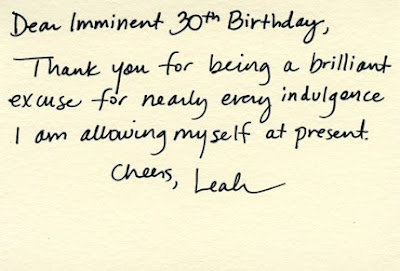 Dear Imminent 30th Birthday,
Thank you for being a brilliant
excuse for nearly every indulgence
I am allowing myself at present.
Cheers, Leah